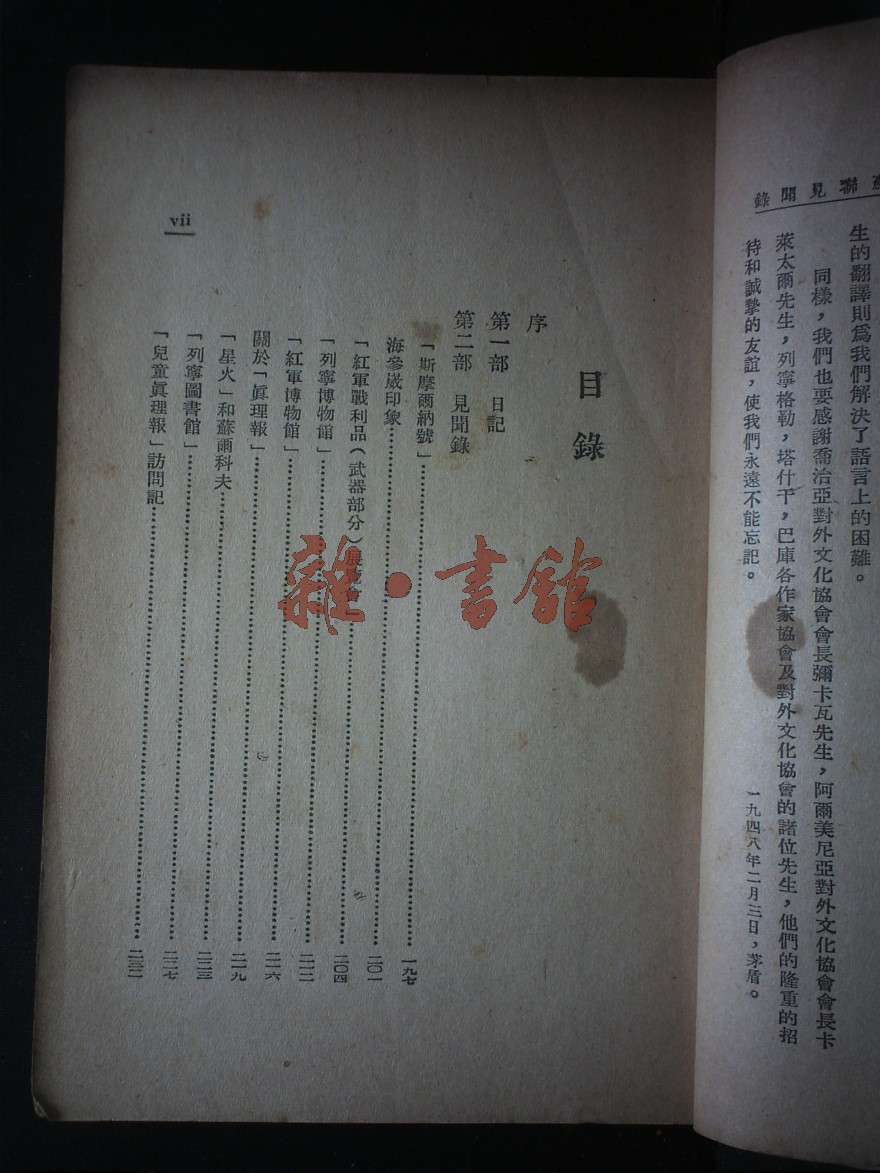 蘇聯見聞錄
生的翻譯則爲我們解決了語言上的困難。
同樣，我們也要感謝喬治亞對外文化協會會長彌卡瓦先生，阿爾美尼亞對外文化協會會長卡
萊太爾先生，列寧格勒，塔什干，巴庫各作家協會及對外文化協會的諸位先生，他們的隆重的招
待和誠摯的友誼，使我們永遠不能忘記。
一九四八年二月三日，茅盾。
vii
目錄
序
第一部 日記
第二部 見聞錄
「斯摩爾納號」……一九七
海參崴印象……二〇一
「紅軍戰利品（武器部分）展覽會」……二〇四
「列寧博物館」……二一二
「紅軍博物館」……二一六
關於「眞理報」……二一九
「星火」和蘇爾科夫……二二三
「列寧圖書館」……二二七
「兒童眞理報」訪問記……二三二
雜·書館